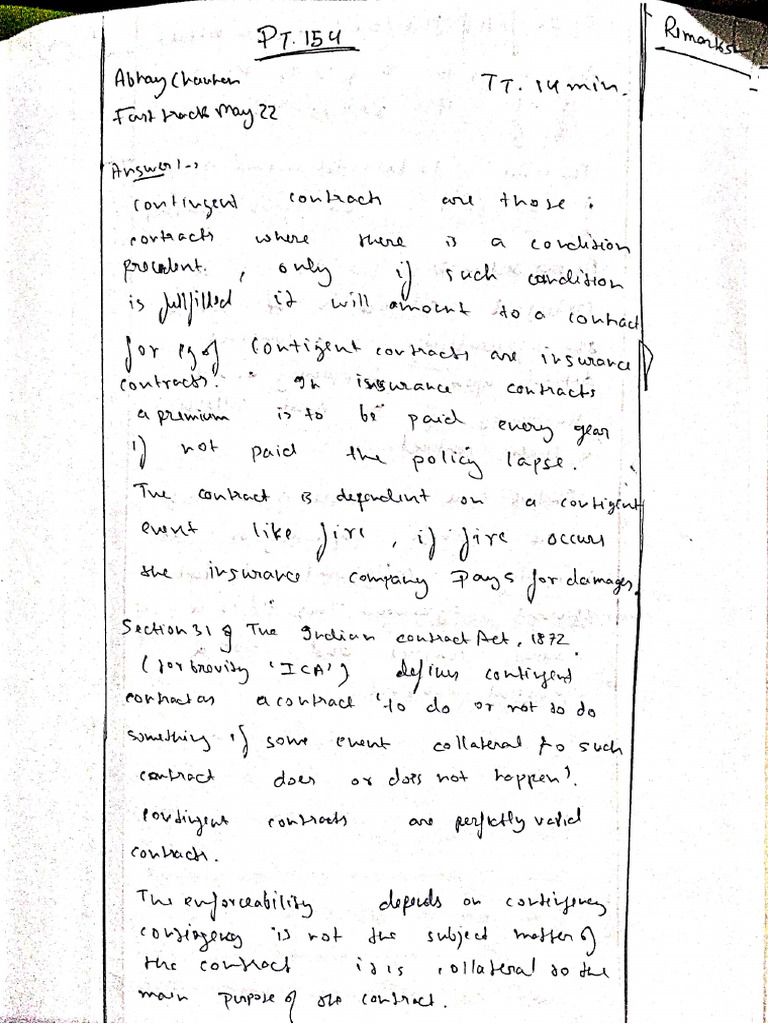 PT. 154
Remarks
Abhay Chauhan
TT. 14 min.
Fast track May 22
Answer 1 →
contingent contracts are those
contracts where there is a condition
precedent, only if such condition
is fulfilled it will amount to a contract
for eg of Contigent contracts are insurance
contracts. In insurance contracts
a premium is to be paid every year
if not paid the policy lapse.
The contract is dependent on a contigent
event like fire, if fire occurs
the insurance company pays for damages.
Section 31 of The Indian contract Act, 1872.
(for brevity 'ICA') defines contingent
contract as a contract 'to do or not to do
something if some event collateral to such
contract does or does not happen'.
contingent contracts are perfectly valid
contracts.
The enforceability depends on contingency
contingency is not the subject matter of
the contract it is collateral to the
main purpose of the contract.